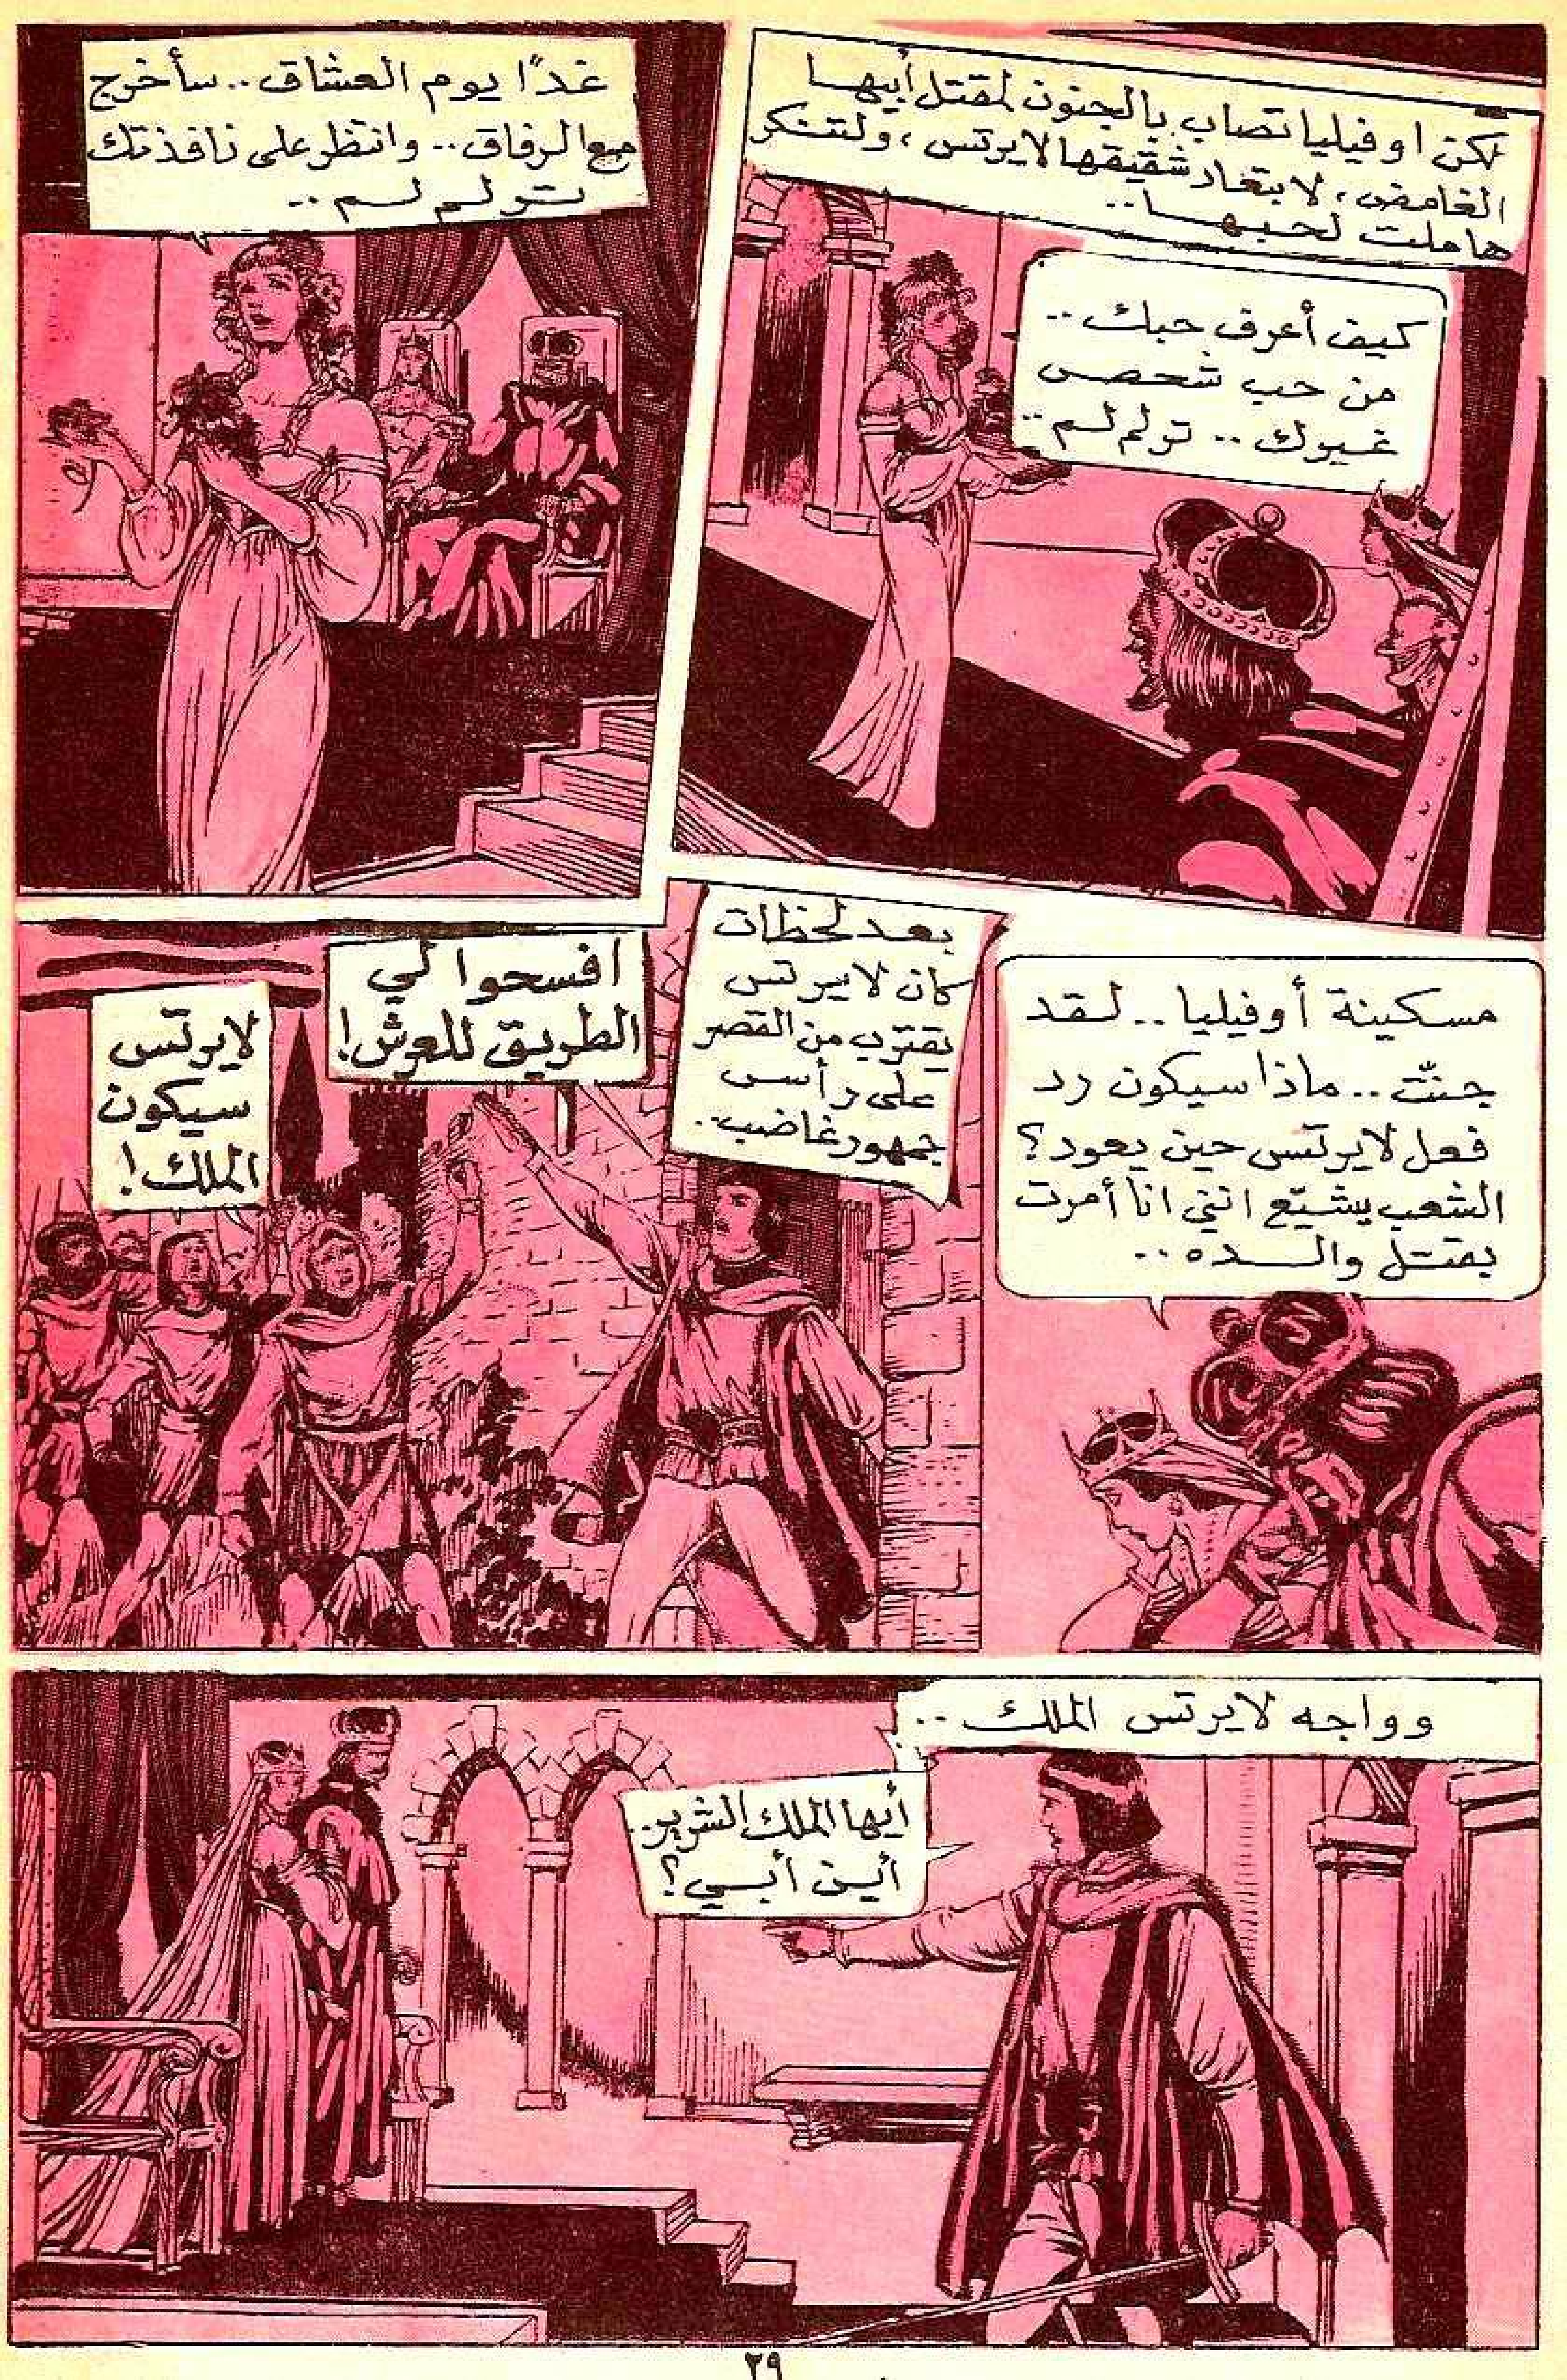 لكن اوفيليا تصاب بالجنون لمقتل أبيها
الغامض، لابتعاد شقيقها لايرتس، ولتنكر
هاملت لحبها..
كيف أعرف حبك..
من حب شخص
غيرك.. تولم لم..
غدًا يوم العشاق.. سأخرج
مع الرفاق.. وانتظر على نافذتك
تولم لم..
مسكينة أوفيليا.. لقد
جنّت.. ماذا سيكون رد
فعل لايرتس حين يعود؟
الشعب يشيّع انني انا أمرت
بقتل والده..
بعد لحظات
كان لايرتس
يقترب من القصر
على رأس
جمهور غاضب..
افسحوا لي
الطريق للعرش!
لايرتس
سيكون
الملك!
وواجه لايرتس الملك..
أيها الملك الشرير.
أين أبي؟
٢٩